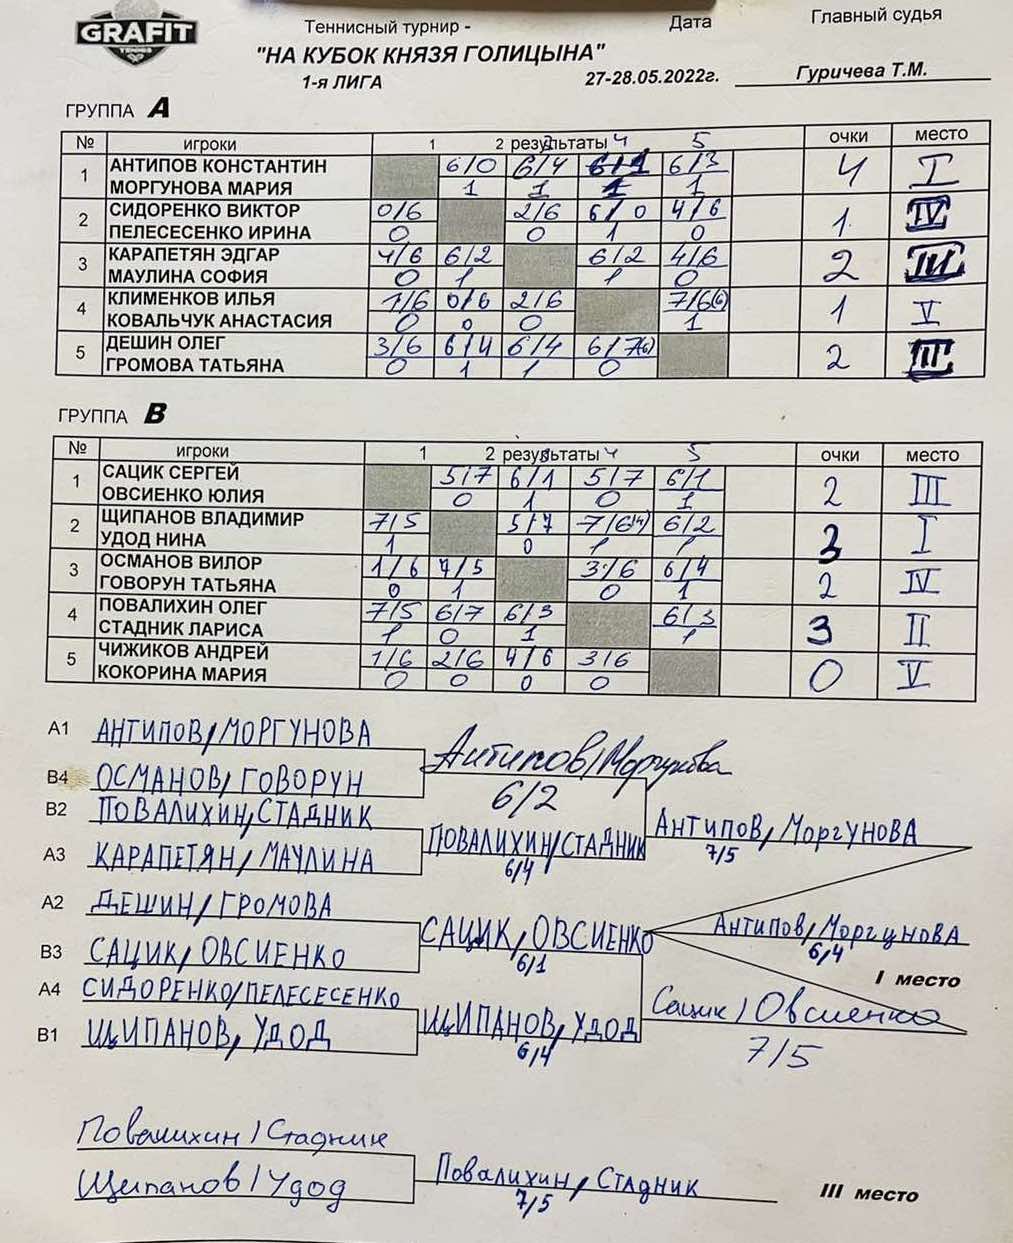 GRAFIT
TENNIS
Теннисный турнир -
Дата
Главный судья
"НА КУБОК КНЯЗЯ ГОЛИЦЫНА"
1-я ЛИГА
27-28.05.2022г.
Гуричева Т.М.
ГРУППА А
№ игроки 1 2 результаты 3 4 5 очки место
1 АНТИПОВ КОНСТАНТИН 6/0 6/4 6/1 6/3 4 I
МОРГУНОВА МАРИЯ 1 1 1 1
2 СИДОРЕНКО ВИКТОР 0/6 2/6 6/0 4/6 1 IV
ПЕЛЕСЕСЕНКО ИРИНА 0 0 1 0
3 КАРАПЕТЯН ЭДГАР 4/6 6/2 6/2 4/6 2 III
МАУЛИНА СОФИЯ 0 1 1 0
4 КЛИМЕНКОВ ИЛЬЯ 1/6 0/6 2/6 7/6(6) 1 V
КОВАЛЬЧУК АНАСТАСИЯ 0 0 0 1
5 ДЕШИН ОЛЕГ 3/6 6/4 6/4 6/7(6) 2
ГРОМОВА ТАТЬЯНА 0 1 1 0
ГРУППА В
№ игроки 1 2 результаты 3 4 5 очки место
1 САЦИК СЕРГЕЙ 5/7 6/1 5/7 6/1 2 III
ОВСИЕНКО ЮЛИЯ 0 1 0 1
2 ЩИПАНОВ ВЛАДИМИР 7/5 5/7 7/6(4) 6/2 3 I
УДОД НИНА 1 0 1 1
3 ОСМАНОВ ВИЛОР 1/6 7/5 3/6 6/4 2 IV
ГОВОРУН ТАТЬЯНА 0 1 0 1
4 ПОВАЛИХИН ОЛЕГ 7/5 6/7 6/3 6/3 3 II
СТАДНИК ЛАРИСА 1 0 1 1
5 ЧИЖИКОВ АНДРЕЙ 1/6 2/6 4/6 3/6 0 V
КОКОРИНА МАРИЯ 0 0 0 0
А1 АНТИПОВ/МОРГУНОВА
В4 ОСМАНОВ/ГОВОРУН
Антипов/Моргунова
6/2
В2 ПОВАЛИХИН/СТАДНИК
А3 КАРАПЕТЯН/МАУЛИНА
ПОВАЛИХИН/СТАДНИК
6/4
АНТИПОВ/МОРГУНОВА
7/5
А2 ДЕШИН/ГРОМОВА
В3 САЦИК/ОВСИЕНКО
САЦИК/ОВСИЕНКО
6/1
А4 СИДОРЕНКО/ПЕЛЕСЕСЕНКО
В1 ЩИПАНОВ/УДОД
ЩИПАНОВ/УДОД
6/4
Сацик/Овсиенко
7/5
АНТИПОВ/МОРГУНОВА
6/4
I место
Повалихин/Стадник
Щипанов/Удод
Повалихин/Стадник
7/5
III место